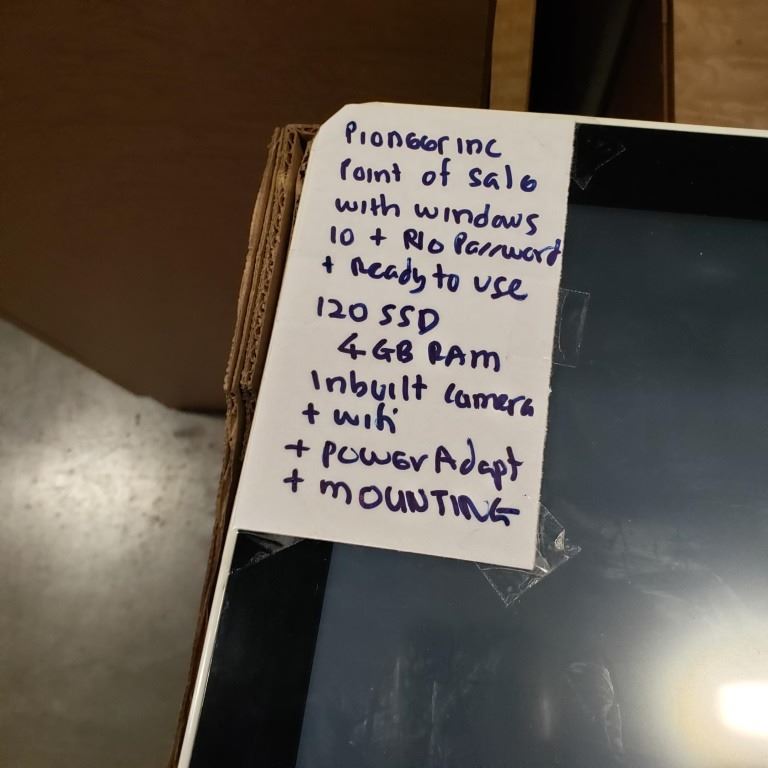 Pioneer inc
Point of sale
with windows
10 + No Password
+ Ready to use
120 SSD
4 GB RAM
Inbuilt camera
+ wifi
+ POWER Adapt
+ MOUNTING